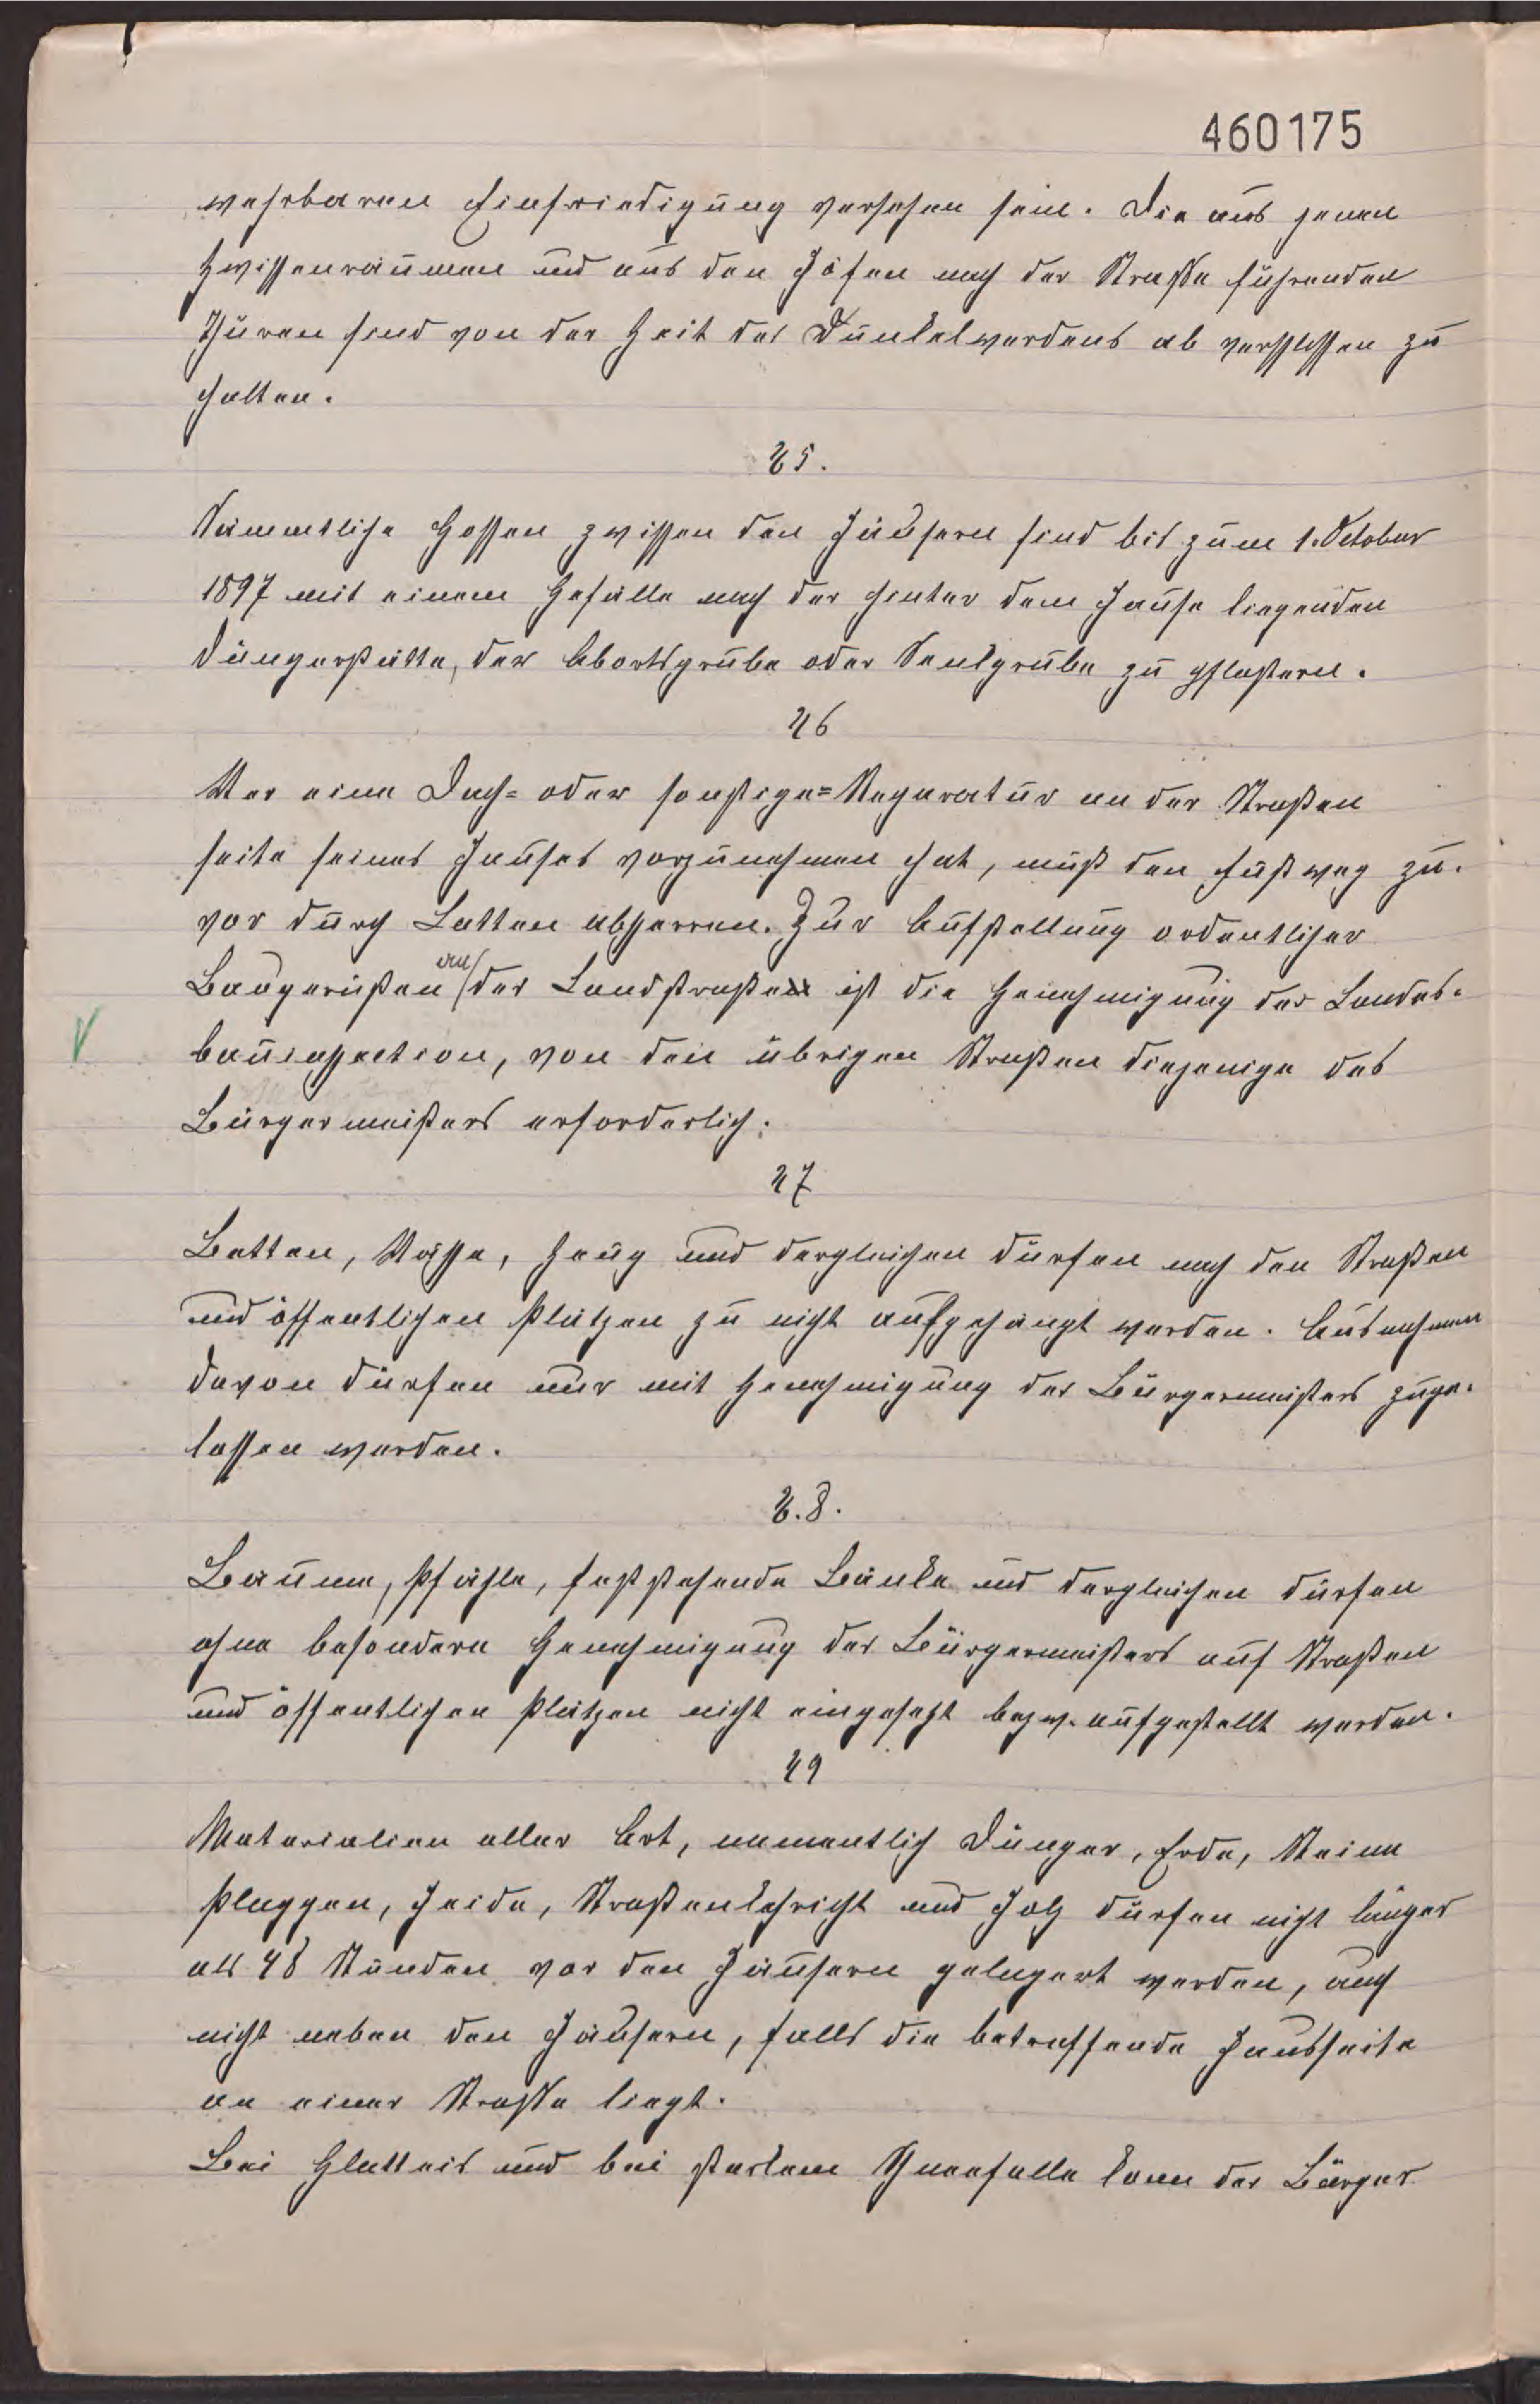 460175
wehrbaren Einfriedigung versehen sein. Die aus jenen
Zwischenräumen und aus den Höfen nach der Straße führenden
Thüren sind von der Zeit des Dunkelwerdens ab verschlossen zu
halten.
25.
Sämmtliche Gossen zwischen den Häusern sind bis zum 1. October
1897 mit einem Gefälle nach der hinter dem Hause liegenden
Düngerstätte, der Abortsgrube oder Senkgrube zu pflastern.
26
Wer eine Dach= oder sonstige= Reparatur an der Straßen
seite seines Hauses vorzunehmen hat, muß den Fußweg zu-
vor durch Latten absperren. Zur Aufstellung ordentlicher
Baugerüsten an der Landstraße ist die Genehmigung der Landes-
bauinspection, von den übrigen Straßen diejenige des
Bürgermeisters erforderlich.
27
Betten, Wäsche, Zeug und dergleichen dürfen nach den Straßen
und öffentlichen Plätzen zu nicht aufgehängt werden. Ausnahmen
davon dürfen nur mit Genehmigung des Bürgermeisters zuge-
lassen werden.
2.8.
Bäume, Pfähle, feststehende Bänke und dergleichen dürfen
ohne besondern Genehmigung des Bürgermeisters auf Straßen
und öffentlichen Plätzen nicht eingesetzt bezw. aufgestellt werden.
29
Materialien aller Art, namentlich Dünger, Erde, Steine
Plaggen, Heide, Straßenkehricht und Holz dürfen nicht länger
als 48 Stunden vor den Häusern gelagert werden, auch
nicht neben den Häusern, falls die betreffende Hausseite
an einer Straße liegt.
Bei Glatteis und bei starkem Schneefalle kann der Bürger